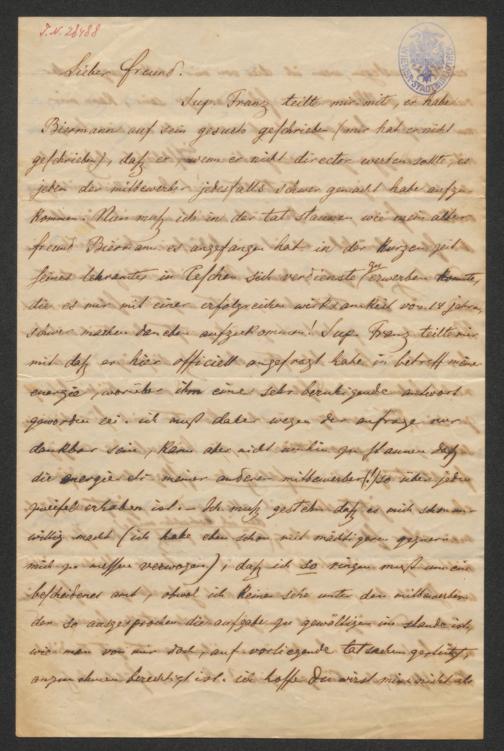 J.N. 28488
WIENER STADTBIBLIOTHEK
Lieber freund.
Sup. Franz teilte mir mit, er habe
Biermann auf sein gesuch geschrieben (mir hat er nicht
geschrieben), daß er, wenn er nicht director werden sollte, es
jeden der mitbewerber jedesfalls schwer gemacht habe aufzu
kommen. Nun muß ich in der tat staunen, wie mein alter
freund Biermann es angefangen hat in der kurzen zeit
seines lehramtes in Teschen sich verdienste zu erwerben konnte,
die es mir mit einer erfolgreichen wirksamkeit von 14 jahren
schwer machen den aufzukommen! Sup. Franz teilte mir
mit daß er hier officiell angefragt habe in betreff meiner
energie, worüber ihm eine sehr beruhigende antwort
geworden sei. ich muß daher wegen der anfrage nur
dankbar sein, kann aber nicht umhin zu staunen daß
die energie meiner anderen mitbewerber (!) so über jeden
zweifel erhaben ist. – Ich muß gestehn daß es mich schon un-
willig macht (ich habe eben schon mit mächtigeren gegnern
mich zu messen verwogen), daß ich so ringen muß um ein
bescheidenes amt, obwol ich keinen sehe unter den mitbewerbern
der so ausgesprochen die aufgabe zu gewältigen im stande ist,
wie man von mir doch, auf vorliegende tatsachen gestützt,
anzunehmen berechtigt ist. ich hoffe du wirst mir nicht als